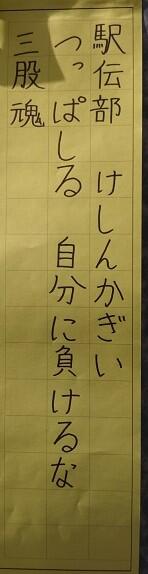 駅伝部　けしんかぎい
つっぱしる　自分に負けるな
三股魂